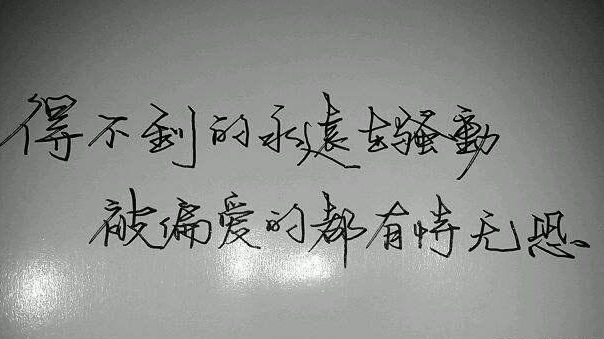 得不到的永遠在騷動
被偏爱的都有恃无恐